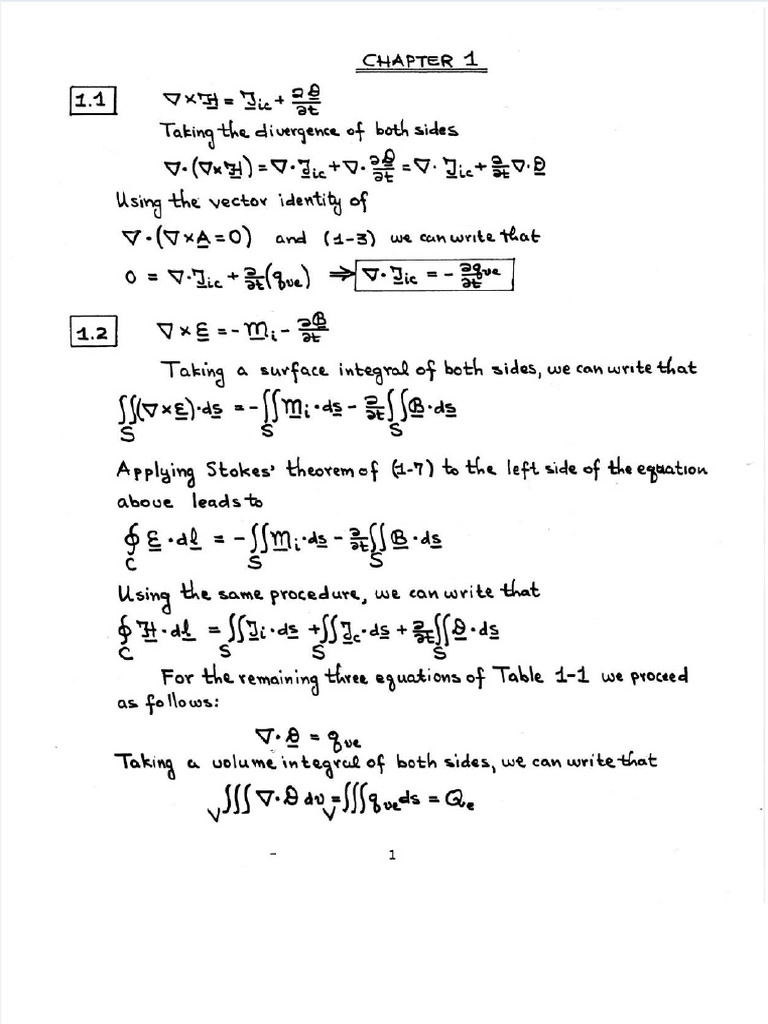 CHAPTER 1
1.1 ∇×H̲ = J̲ic + ∂D̲/∂t
Taking the divergence of both sides
∇·(∇×H̲) = ∇·J̲ic + ∇·∂D̲/∂t = ∇·J̲ic + ∂/∂t ∇·D̲
Using the vector identity of
∇·(∇×A̲=0) and (1-3) we can write that
0 = ∇·J̲ic + ∂/∂t(qve) ⟹ ∇·J̲ic = -∂qve/∂t
1.2 ∇×E̲ = -M̲i - ∂B̲/∂t
Taking a surface integral of both sides, we can write that
∬S(∇×E̲)·ds̲ = -∬S M̲i·ds̲ - ∂/∂t ∬S B̲·ds̲
Applying Stokes' theorem of (1-7) to the left side of the equation
above leads to
∮C E̲·dl̲ = -∬S M̲i·ds̲ - ∂/∂t ∬S B̲·ds̲
Using the same procedure, we can write that
∮C H̲·dl̲ = ∬S J̲i·ds̲ + ∬S J̲c·ds̲ + ∂/∂t ∬S D̲·ds̲
For the remaining three equations of Table 1-1 we proceed
as follows:
∇·D̲ = qve
Taking a volume integral of both sides, we can write that
∭V ∇·D̲ dv = ∭V qve ds = Qe
- 1